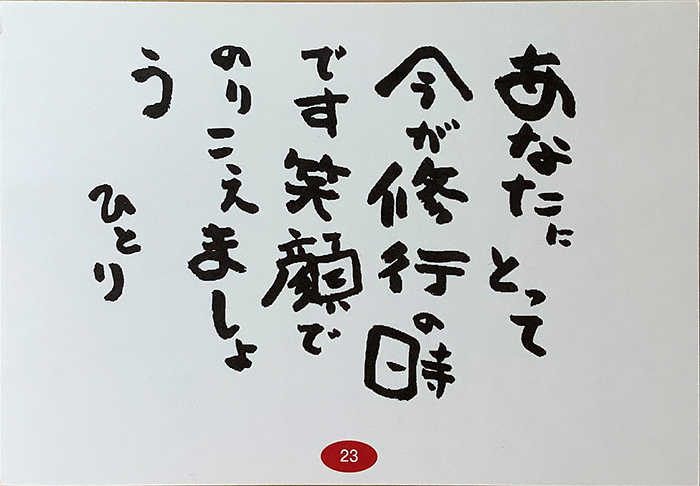 あなたにとって
今が修行の時
です笑顔で
のりこえましょ
う
ひとり
23